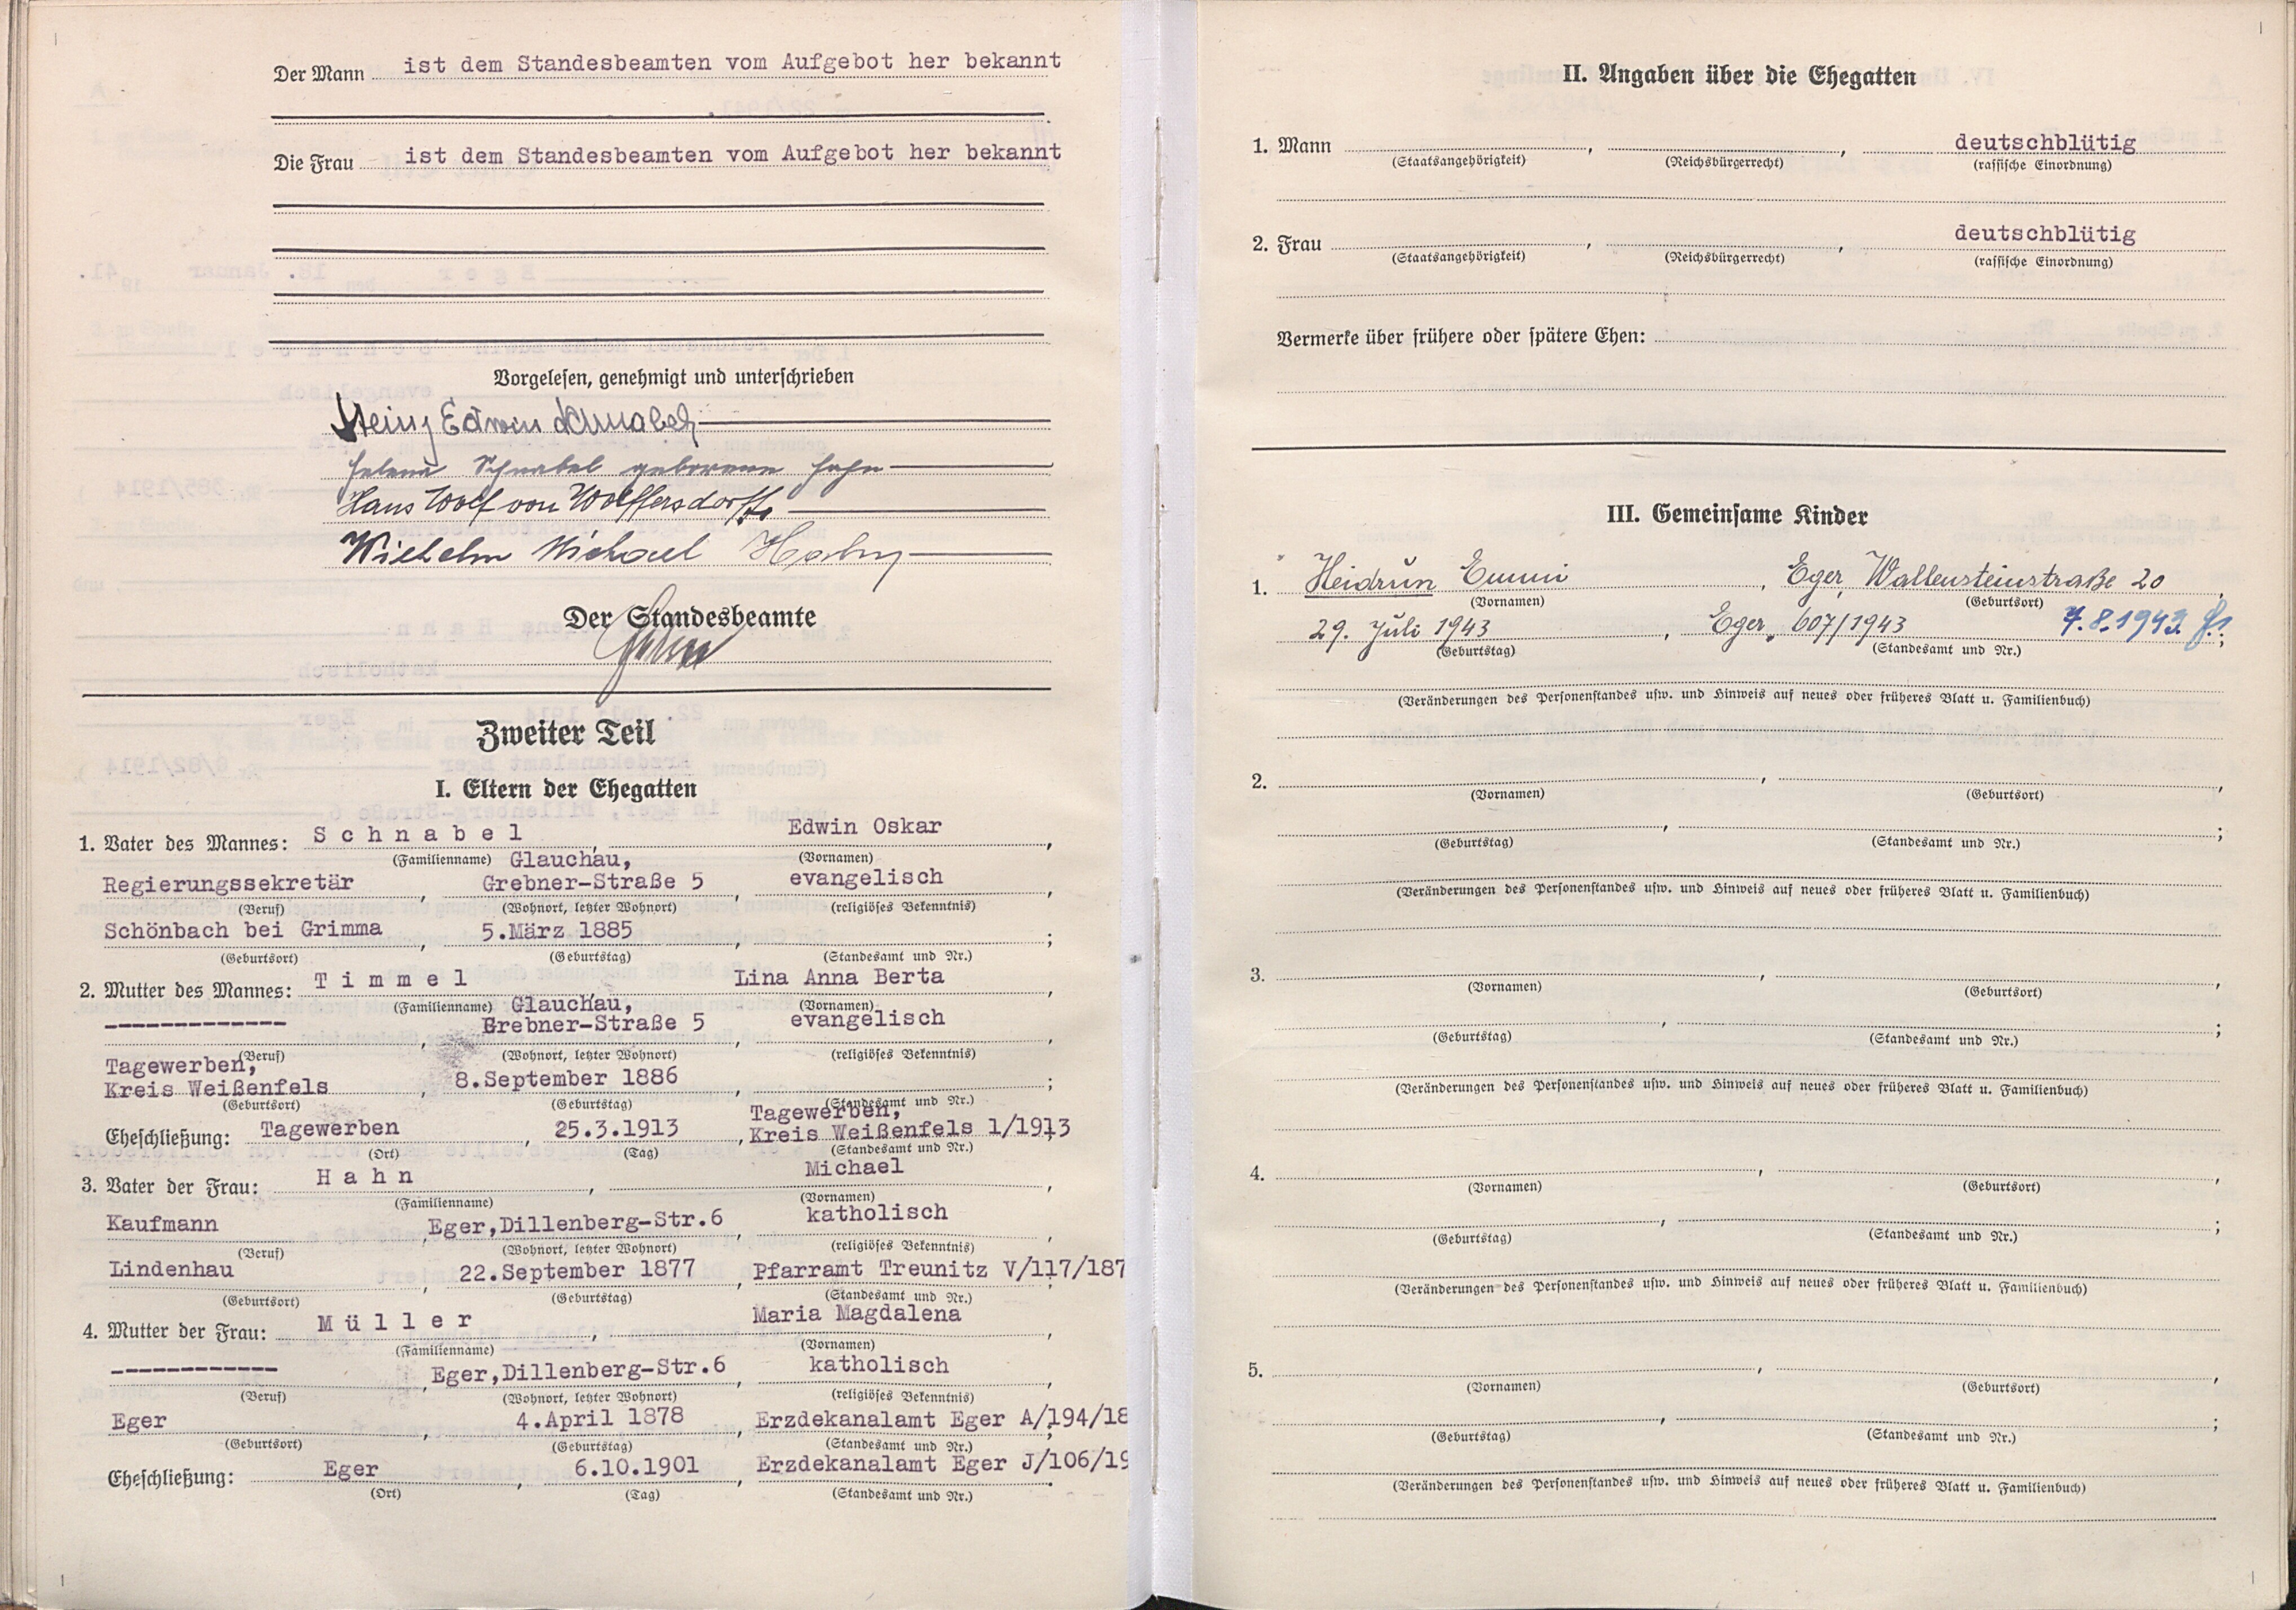 Der Mann ist dem Standesbeamten vom Aufgebot her bekannt
Die Frau ist dem Standesbeamten vom Aufgebot her bekannt
Vorgelesen, genehmigt und unterschrieben
Heinz Edwin Schnabel
Helene Schnabel geborene Hahn
Hans Wolf von Wolffersdorff
Wilhelm Michael
Der Standesbeamte
Zweiter Teil
I. Eltern der Ehegatten
1. Vater des Mannes: Schnabel, Edwin Oskar,
(Familienname) Glauchau, (Vornamen)
Regierungssekretär, Grebner-Straße 5, evangelisch,
(Beruf) (Wohnort, letzter Wohnort) (religiöses Bekenntnis)
Schönbach bei Grimma, 5.März 1885, ;
(Geburtsort) (Geburtstag) (Standesamt und Nr.)
2. Mutter des Mannes: Timmel, Lina Anna Berta,
(Familienname) Glauchau, (Vornamen)
------------, Grebner-Straße 5, evangelisch,
(Beruf) (Wohnort, letzter Wohnort) (religiöses Bekenntnis)
Tagewerben,
Kreis Weißenfels, 8.September 1886, ;
(Geburtsort) (Geburtstag) (Standesamt und Nr.)
Tagewerben,
Eheschließung: Tagewerben, 25.3.1913, Kreis Weißenfels 1/1913
(Ort) (Tag) (Standesamt und Nr.)
3. Vater der Frau: Hahn, Michael,
(Familienname) (Vornamen)
Kaufmann, Eger,Dillenberg-Str.6, katholisch,
(Beruf) (Wohnort, letzter Wohnort) (religiöses Bekenntnis)
Lindenhau, 22.September 1877, Pfarramt Treunitz V/117/187
(Geburtsort) (Geburtstag) (Standesamt und Nr.)
4. Mutter der Frau: Müller, Maria Magdalena,
(Familienname) (Vornamen)
------------, Eger,Dillenberg-Str.6, katholisch,
(Beruf) (Wohnort, letzter Wohnort) (religiöses Bekenntnis)
Eger, 4.April 1878, Erzdekanalamt Eger A/194/18
(Geburtsort) (Geburtstag) (Standesamt und Nr.)
Eheschließung: Eger, 6.10.1901, Erzdekanalamt Eger J/106/19
(Ort) (Tag) (Standesamt und Nr.)
II. Angaben über die Ehegatten
1. Mann , , deutschblütig
(Staatsangehörigkeit) (Reichsbürgerrecht) (rassische Einordnung)
2. Frau , , deutschblütig
(Staatsangehörigkeit) (Reichsbürgerrecht) (rassische Einordnung)
Vermerke über frühere oder spätere Ehen:
III. Gemeinsame Kinder
1. Heidrun Emmi, Eger, Wallensteinstraße 20,
(Vornamen) (Geburtsort)
29. Juli 1943, Eger, 607/1943 7.8.1943
(Geburtstag) (Standesamt und Nr.)
(Veränderungen des Personenstandes usw. und Hinweis auf neues oder früheres Blatt u. Familienbuch)
2. , ,
(Vornamen) (Geburtsort)
, ;
(Geburtstag) (Standesamt und Nr.)
(Veränderungen des Personenstandes usw. und Hinweis auf neues oder früheres Blatt u. Familienbuch)
3. , ,
(Vornamen) (Geburtsort)
, ;
(Geburtstag) (Standesamt und Nr.)
(Veränderungen des Personenstandes usw. und Hinweis auf neues oder früheres Blatt u. Familienbuch)
4. , ,
(Vornamen) (Geburtsort)
, ;
(Geburtstag) (Standesamt und Nr.)
(Veränderungen des Personenstandes usw. und Hinweis auf neues oder früheres Blatt u. Familienbuch)
5. , ,
(Vornamen) (Geburtsort)
, ;
(Geburtstag) (Standesamt und Nr.)
(Veränderungen des Personenstandes usw. und Hinweis auf neues oder früheres Blatt u. Familienbuch)